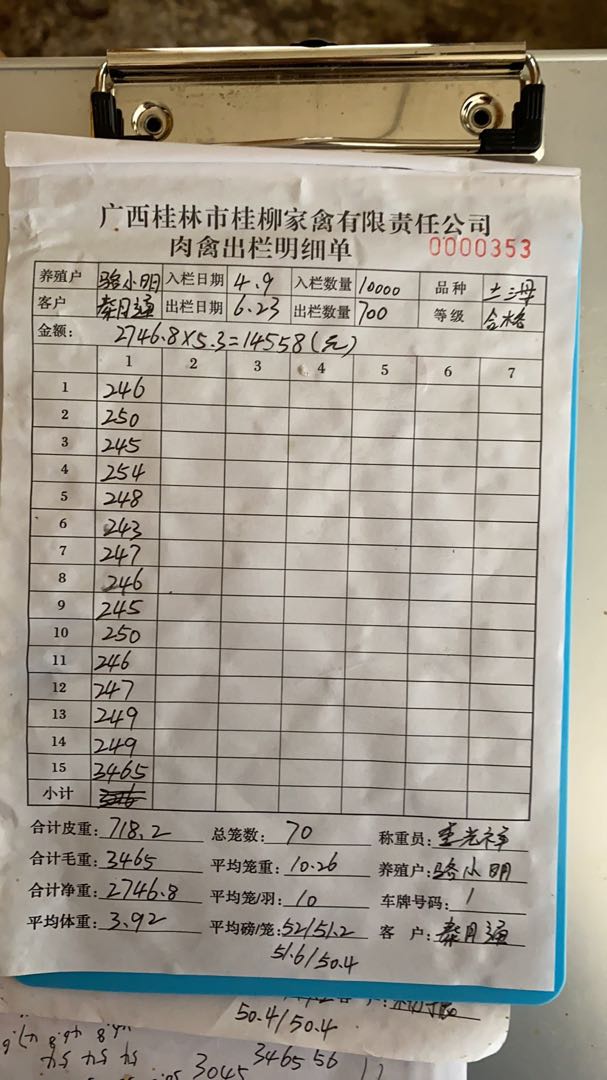 广西桂林市桂柳家禽有限责任公司
肉禽出栏明细单 0000353
养殖户 骆小明 入栏日期 4.9 入栏数量 10000 品种 土海
客户 秦月通 出栏日期 6.23 出栏数量 700 等级 合格
金额: 2746.8×5.3=14558(元)
1 2 3 4 5 6 7
1 246
2 250
3 245
4 254
5 248
6 243
7 247
8 246
9 245
10 250
11 246
12 247
13 249
14 249
15 3465
小计
合计皮重: 718.2 总笼数: 70 称重员:
合计毛重: 3465 平均笼重: 10.26 养殖户: 骆小明
合计净重: 2746.8 平均笼/羽: 10 车牌号码: 1
平均体重: 3.92 平均磅/笼: 52/51.2 客 户: 秦月通
51.6/50.4
50.4/50.4
3045 3465 56